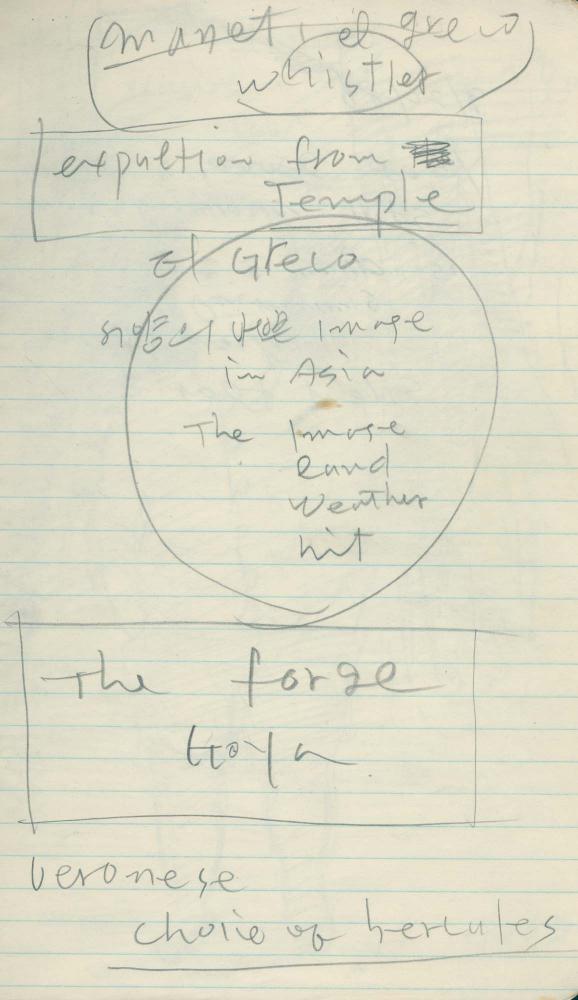 manet, el greco
whistler
expultion from
Temple
El Greco
image
in Asia
The Image
Rand
Weather
hit
The forge
Goya
Veronese
choic of hercules